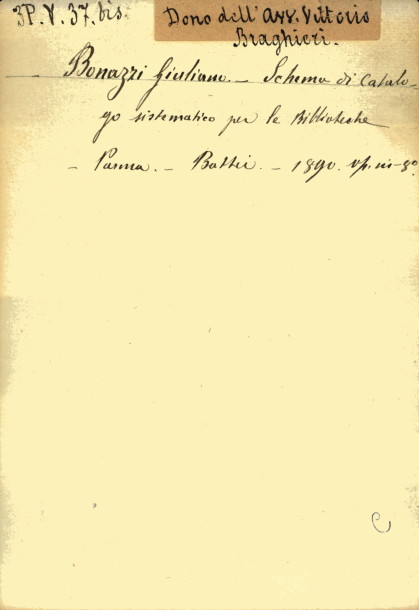 3P.V.37.bis.
Dono dell'Avv. Vittorio
Braghieri.
Bonazzi Giuliano. - Schema di Catalo-
go sistematico per le Biblioteche
- Parma. - Battei. - 1890. op. in-8º